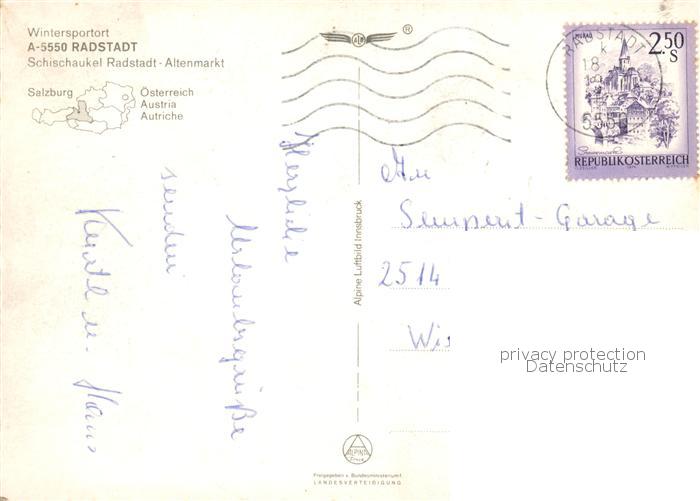 Wintersportort
A-5550 RADSTADT
Schischaukel Radstadt - Altenmarkt
Salzburg
Österreich
Austria
Autriche
®
RADSTADT
18
5550
2.50
S
REPUBLIK ÖSTERREICH
Herzliche
Urlaubsgrüße
senden
u. Hans
Alpine Luftbild Innsbruck
An
Semperit-Garage
2514
privacy protection
Datenschutz
ALPINE
Freigegeben v. Bundesministerium f.
LANDESVERTEIDIGUNG